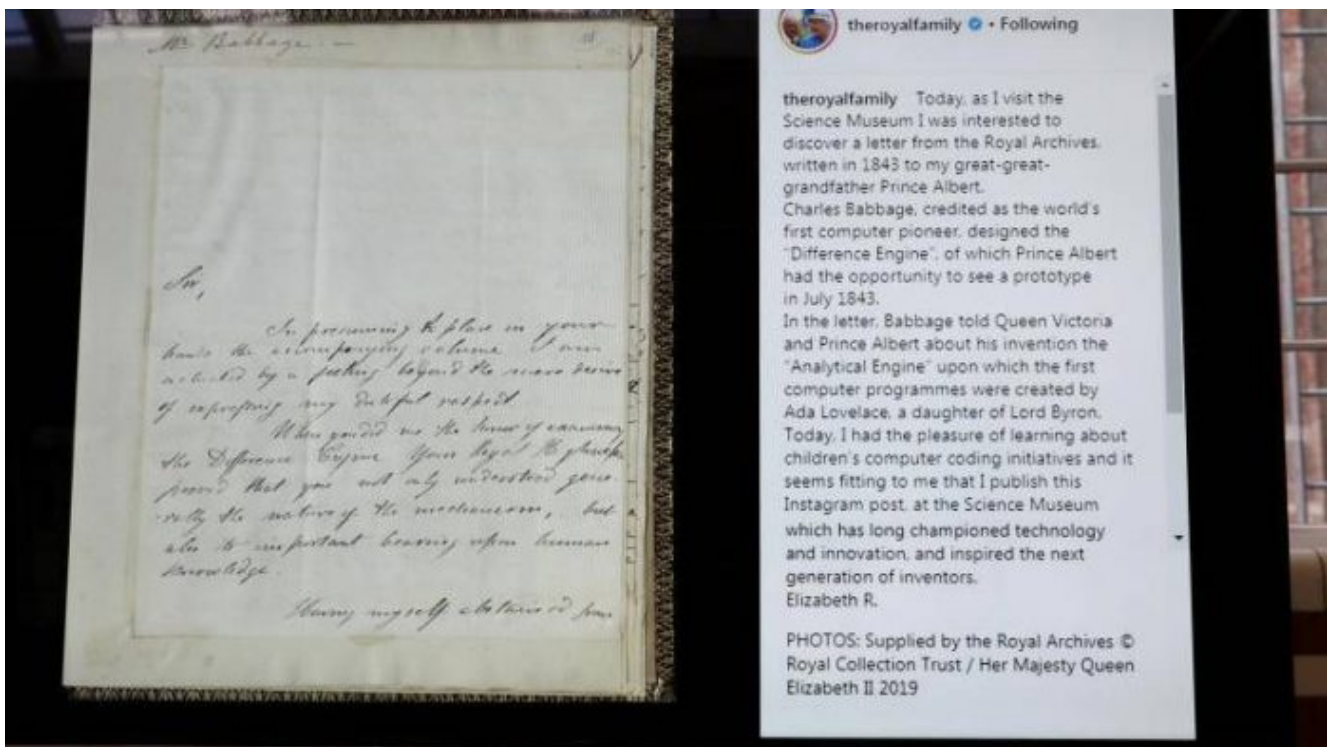 Mr Babbage. —
Sir,
In presuming to place in your
hands the accompanying volume I am
actuated by a feeling beyond the mere desire
of expressing my dutiful respect.
When you did me the honor of examining
the Difference Engine Your Royal Highness
proved that you not only understood gene-
rally the nature of the mechanism, but
also its important bearing upon human
knowledge.
Having myself abstained from
theroyalfamily • Following
theroyalfamily Today, as I visit the
Science Museum I was interested to
discover a letter from the Royal Archives,
written in 1843 to my great-great-
grandfather Prince Albert.
Charles Babbage, credited as the world's
first computer pioneer, designed the
"Difference Engine", of which Prince Albert
had the opportunity to see a prototype
in July 1843.
In the letter, Babbage told Queen Victoria
and Prince Albert about his invention the
"Analytical Engine" upon which the first
computer programmes were created by
Ada Lovelace, a daughter of Lord Byron.
Today, I had the pleasure of learning about
children's computer coding initiatives and it
seems fitting to me that I publish this
Instagram post, at the Science Museum
which has long championed technology
and innovation, and inspired the next
generation of inventors.
Elizabeth R.
PHOTOS: Supplied by the Royal Archives ©
Royal Collection Trust / Her Majesty Queen
Elizabeth II 2019